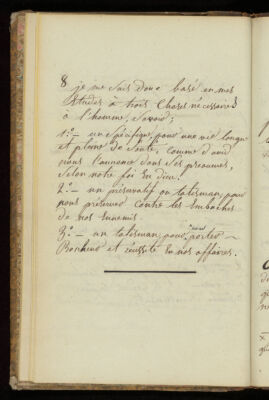 8 je me suis donc basé en mes
Etudes à trois Choses nécessaires
à l'homme, savoir;
1.º — un spécifique, pour une vie longue
et pleine de Santé, comme david
nous l'annonce dans ses pseaumes,
selon notre foi En Dieu.
2.º — un préservatif ou talisman, pour
nous préserver contre les Embuches
de nos Ennemis.
3.º — un talisman, pour nous porter
Bonheur et réussite En nos affaires.